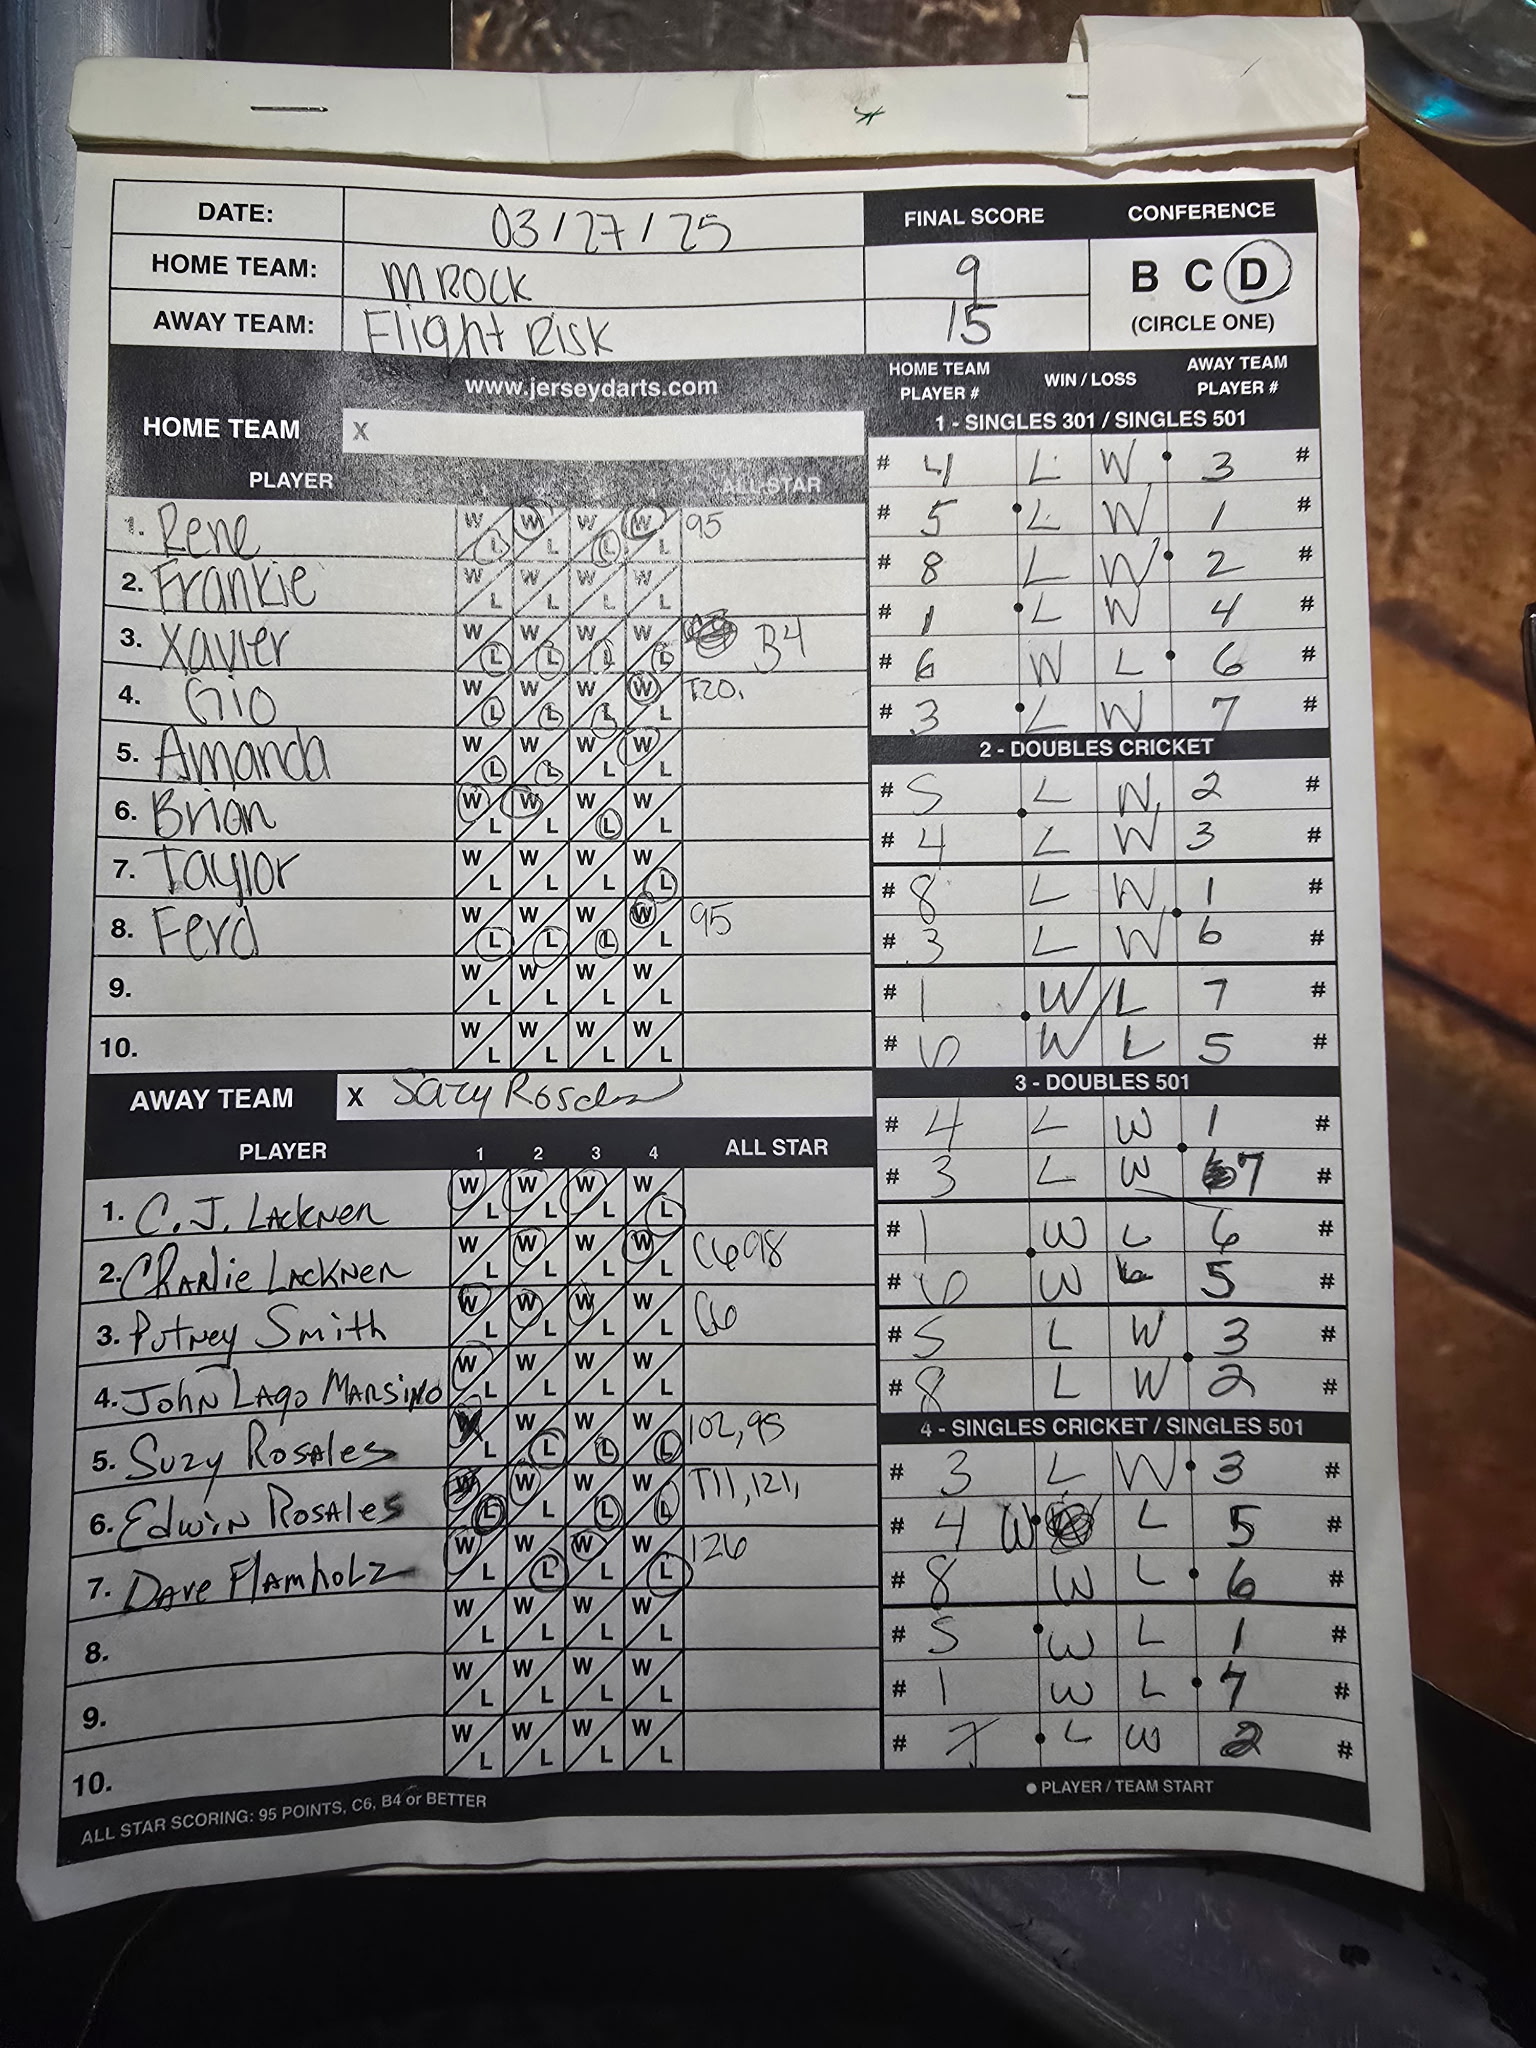 DATE: 03/27/25 FINAL SCORE CONFERENCE
HOME TEAM: M ROCK 9 B C D
AWAY TEAM: Flight Risk 15 (CIRCLE ONE)
www.jerseydarts.com
HOME TEAM PLAYER # WIN / LOSS AWAY TEAM PLAYER #
HOME TEAM X
PLAYER 1 2 3 4 ALL STAR
1. Rene W L W L W L W L 95
2. Frankie W L W L W L W L
3. Xavier W L W L W L W L B4
4. Gio W L W L W L W L T20,
5. Amanda W L W L W L W L
6. Brian W L W L W L W L
7. Taylor W L W L W L W L
8. Ferd W L W L W L W L 95
9. W L W L W L W L
10. W L W L W L W L
AWAY TEAM X Suzy Rosales
PLAYER 1 2 3 4 ALL STAR
1. C.J. Lackner W L W L W L W L
2. Charlie Lackner W L W L W L W L C6 98
3. Putney Smith W L W L W L W L C6
4. John Lago Marsino W L W L W L W L
5. Suzy Rosales L W L W L W L 102, 95
6. Edwin Rosales W L W L W L W L T11, 121,
7. Dave Flamholz W L W L W L W L 126
8. W L W L W L W L
9. W L W L W L W L
10. W L W L W L W L
ALL STAR SCORING: 95 POINTS, C6, B4 or BETTER
1 - SINGLES 301 / SINGLES 501
# 4 L W 3 #
# 5 L W 1 #
# 8 L W 2 #
# 1 L W 4 #
# 6 W L 6 #
# 3 L W 7 #
2 - DOUBLES CRICKET
# 5 L W 2 #
# 4 L W 3 #
# 8 L W 1 #
# 3 L W 6 #
# 1 W L 7 #
# 6 W L 5 #
3 - DOUBLES 501
# 4 L W 1 #
# 3 L W 7 #
# 1 W L 6 #
# 6 W L 5 #
# 5 L W 3 #
# 8 L W 2 #
4 - SINGLES CRICKET / SINGLES 501
# 3 L W 3 #
# 4 W L 5 #
# 8 W L 6 #
# 5 W L 1 #
# 1 W L 7 #
# 7 L W 2 #
● PLAYER / TEAM START